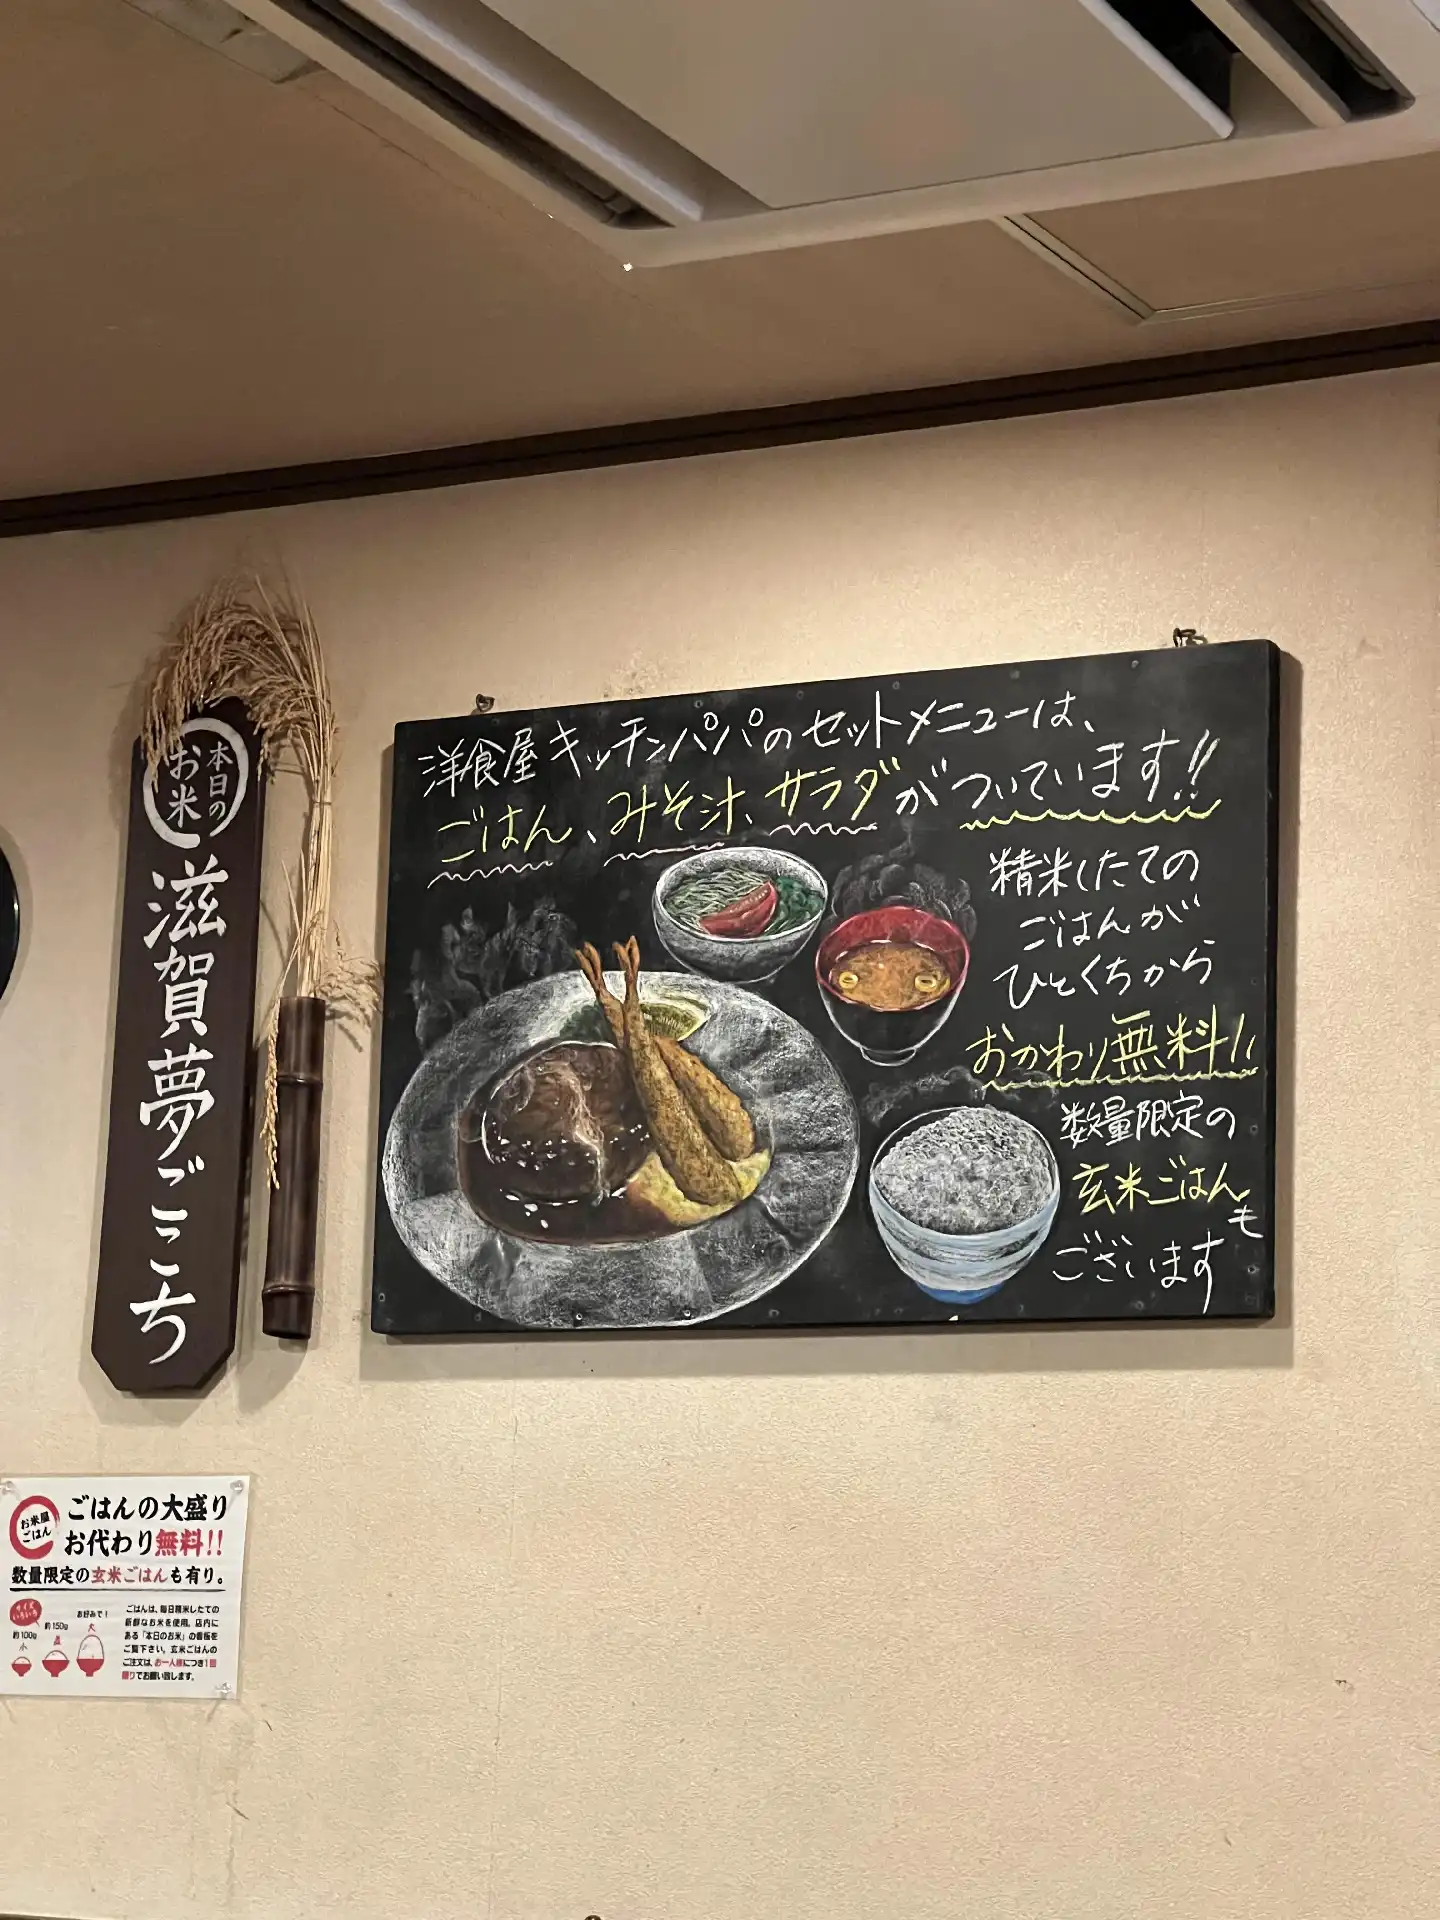 本日の
お米
滋賀夢ごこち
洋食屋キッチンパパのセットメニューは、
ごはん、みそ汁、サラダがついています!!
精米したての
ごはんが
ひとくちから
おかわり無料!!
数量限定の
玄米ごはんも
ございます
お米屋
ごはん
ごはんの大盛り
お代わり無料!!
数量限定の玄米ごはんも有り。
サイズ
いろいろ
お好みで!
約100g
約150g
小
並
大
ごはんは、毎日精米したての
新鮮なお米を使用。店内に
ある「本日のお米」の看板を
ご覧下さい。玄米ごはんの
ご注文は、お一人様につき1回
限りでお願い致します。